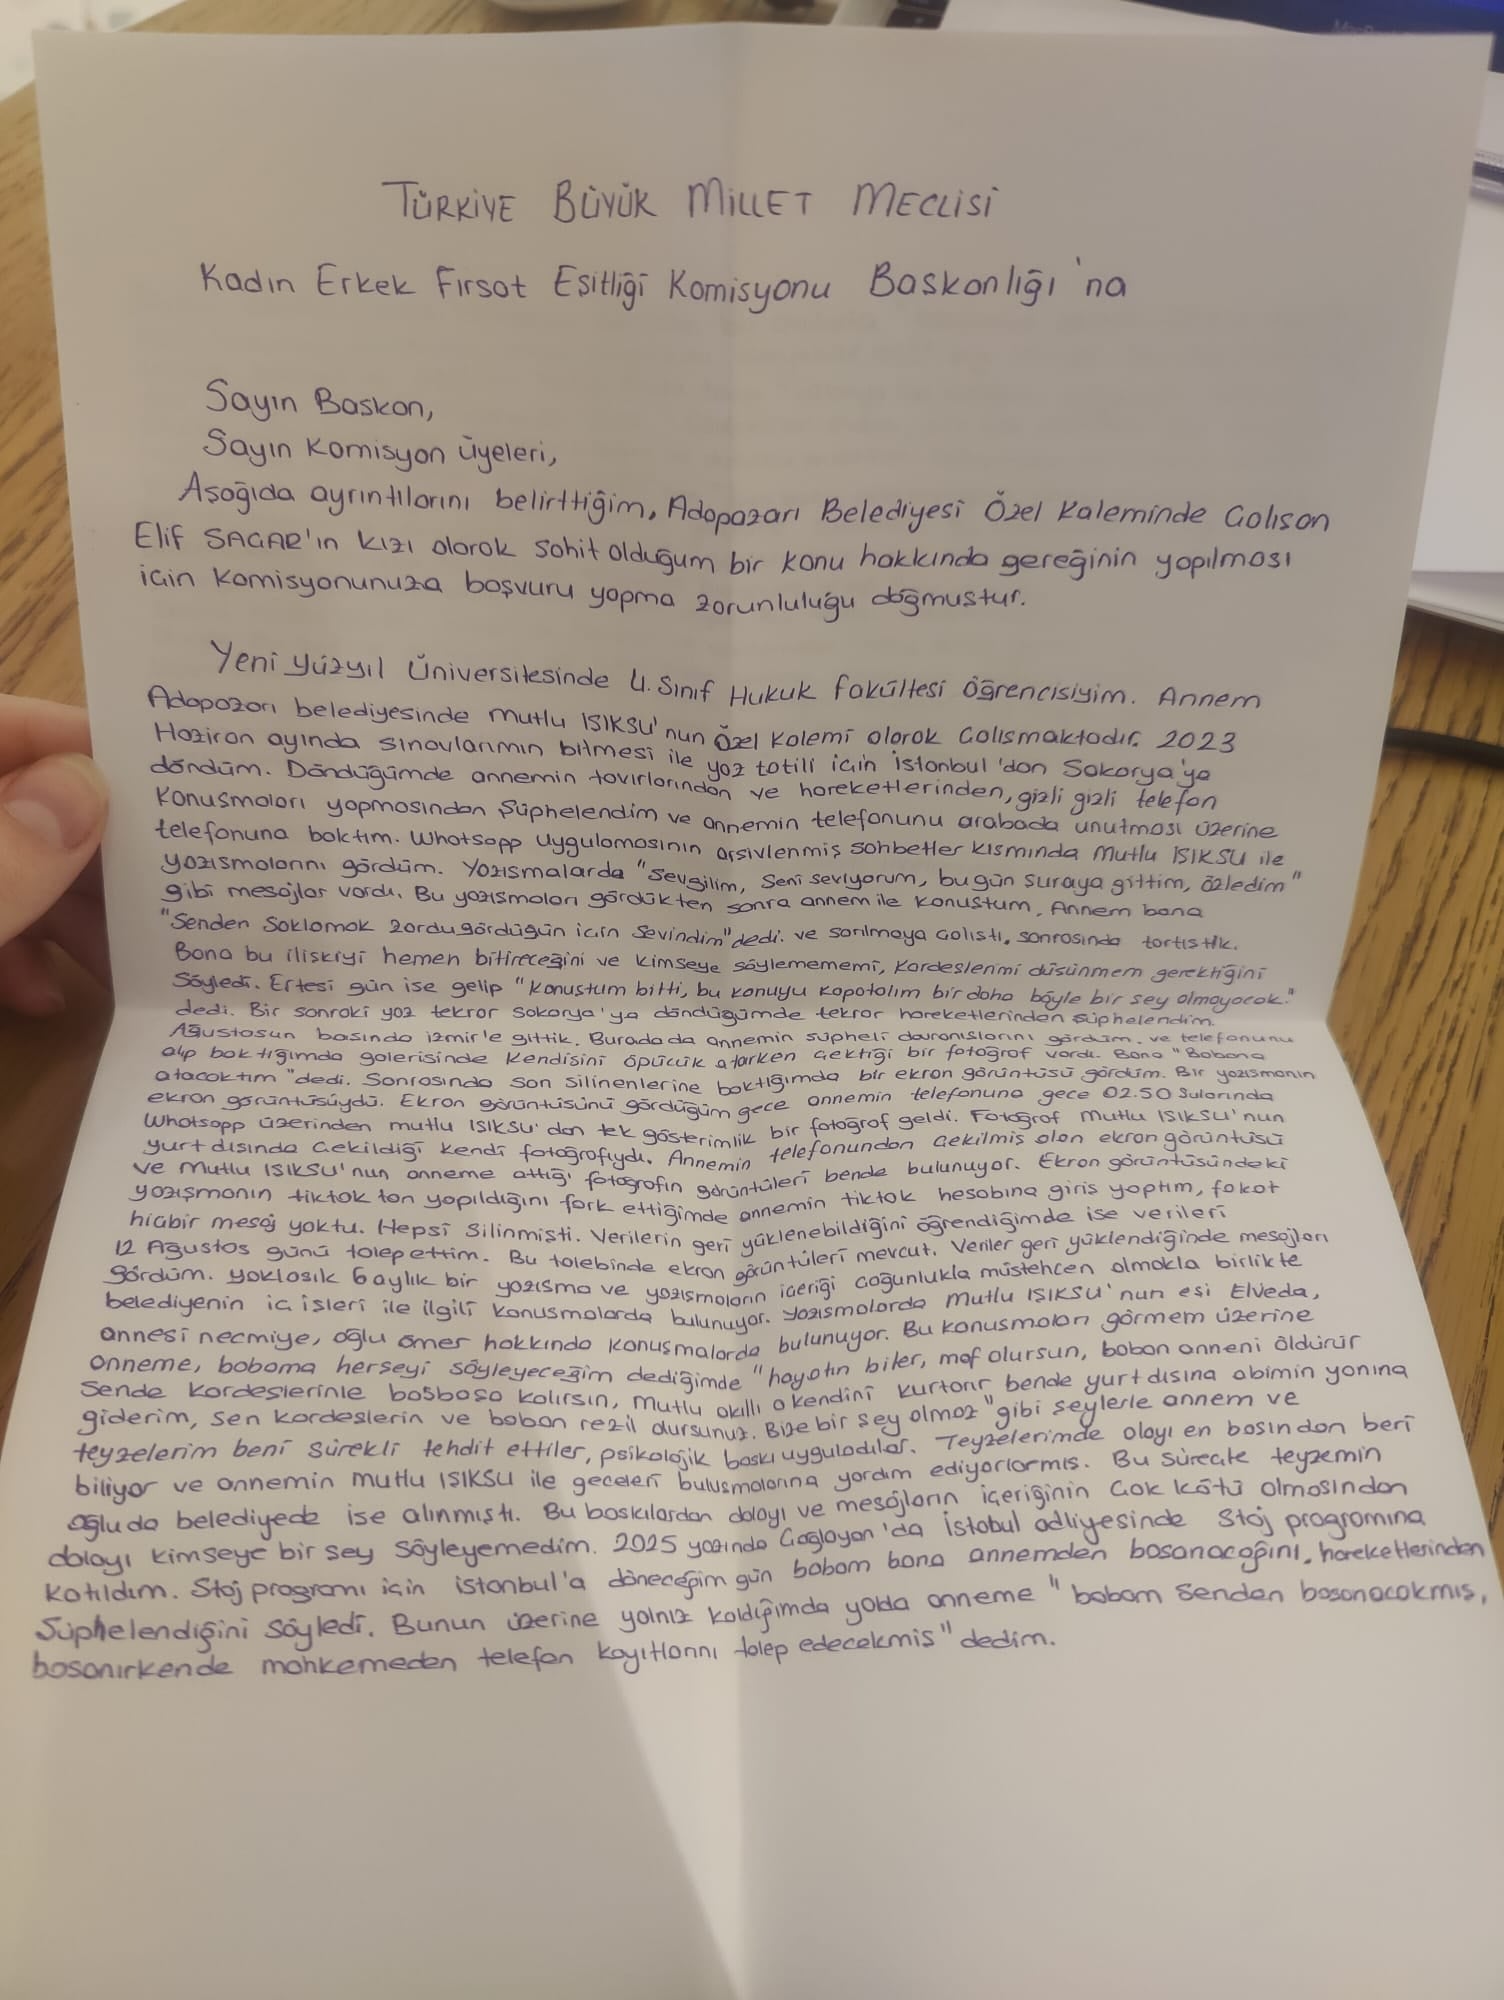 TÜRKİYE BÜYÜK MİLLET MECLİSİ
Kadın Erkek Fırsat Esitliği Komisyonu Baskanlığı'na
Sayın Baskan,
Sayın Komisyon Üyeleri,
Aşağıda ayrıntılarını belirttiğim, Adapazarı Belediyesi Özel Kaleminde Calısan
Elif SAGAR'ın kızı olarak sahit olduğum bir konu hakkında gereğinin yapılması
icin Komisyonunuza başvuru yapma zorunluluğu doğmustur.
Yeni Yüzyıl Üniversitesinde 4. Sınıf Hukuk fakültesi öğrencisiyim. Annem
Adapazarı belediyesinde Mutlu IŞIKSU'nun Özel Kalemi olarak Calısmaktadır. 2023
Haziran ayında sınavlarımın bitmesi ile yaz tatili icin İstanbul'dan Sakarya'ya
döndüm. Döndüğümde annemin tavırlarından ve hareketlerinden, gizli gizli telefon
Konusmaları yapmasından Şüphelendim ve annemin telefonunu arabada unutması üzerine
telefonuna baktım. Whatsapp uygulamasının arsivlenmiş sohbetler kısmında Mutlu IŞIKSU ile
yazısmalarını gördüm. Yazısmalarda "Sevgilim, Seni seviyorum, bugün suraya gittim, özledim"
gibi mesajlar vardı. Bu yazısmaları gördükten sonra annem ile konustum. Annem bana
"Senden Saklamak zordu gördüğün icin Sevindim" dedi. ve sarılmaya calıstı, sonrasında tartıstık.
Bana bu iliskiyi hemen bitireceğini ve kimseye söylemememi, kardeslerimi düsünmem gerektiğini
Söyledi. Ertesi gün ise gelip "Konustum bitti, bu konuyu kapatalım bir daha böyle bir sey olmayacak."
dedi. Bir sonraki yaz tekrar Sakarya'ya döndüğümde tekrar hareketlerinden şüphelendim.
Ağustosun basında izmir'e gittik. Burada da annemin süpheli davranıslarını gördüm. ve telefonunu
alıp baktığımda galerisinde kendisini öpücük atarken cektiği bir fotoğraf vardı. Bana "Babana
atacaktım" dedi. Sonrasında son silinenlerine baktığımda bir ekran görüntüsü gördüm. Bir yazısmanın
ekran görüntüsüydü. Ekran görüntüsünü gördüğüm gece annemin telefonuna gece 02.50 Sularında
Whatsapp üzerinden mutlu IŞIKSU'dan tek gösterimlik bir fotoğraf geldi. Fotoğraf Mutlu IŞIKSU'nun
yurt dısında cekildiği kendi fotoğrafıydı. Annemin telefonundan cekilmiş olan ekran görüntüsü
ve Mutlu IŞIKSU'nun anneme attığı fotoğrafın görüntüleri bende bulunuyor. Ekran görüntüsündeki
yazışmanın tiktok tan yapıldığını fark ettiğimde annemin tiktok hesabına giris yaptım, fakat
hicbir mesaj yoktu. Hepsi Silinmisti. Verilerin geri yüklenebildiğini öğrendiğimde ise verileri
12 Ağustos günü talep ettim. Bu talebinde ekran görüntüleri mevcut. Veriler geri yüklendiğinde mesajları
gördüm. yaklasık 6 aylık bir yazısma ve yazısmaların iceriği coğunlukla müstehcen olmakla birlikte
belediyenin ic işleri ile ilgili konusmalarda bulunuyor. Yazısmalarda Mutlu IŞIKSU'nun esi Elveda,
annesi necmiye, oğlu ömer hakkında konuşmalarda bulunuyor. Bu konusmaları görmem üzerine
anneme, babama herseyi söyleyeceğim dediğimde "hayatın biter, mafolursun, baban anneni öldürür
Sende kardeşlerinle basbasa kalırsın, Mutlu akıllı o kendini kurtarır bende yurtdısına abimin yanına
giderim, sen kardeslerin ve baban rezil olursunuz. Bize bir sey olmaz" gibi seylerle annem ve
teyzelerim beni sürekli tehdit ettiler, psikolojik baskı uyguladılar. Teyzelerimde olayı en basından beri
biliyor ve annemin mutlu IŞIKSU ile geceleri bulusmalarına yardım ediyorlarmıs. Bu sürecte teyzemin
oğluda belediyede ise alınmıstı. Bu baskılardan dolayı ve mesajların içeriğinin cok kötü olmasından
dolayı kimseye bir sey söyleyemedim. 2025 yazında Caglayan'da İstabul adliyesinde Staj programına
katıldım. Staj programı icin istanbul'a döneceğim gün babam bana annemden bosanacağını, hareketlerinden
Süphelendiğini söyledi. Bunun üzerine yalnız kaldığımda yolda anneme "babam senden bosanacakmıs,
bosanırkende mahkemeden telefon kayıtlarını talep edecekmis" dedim.